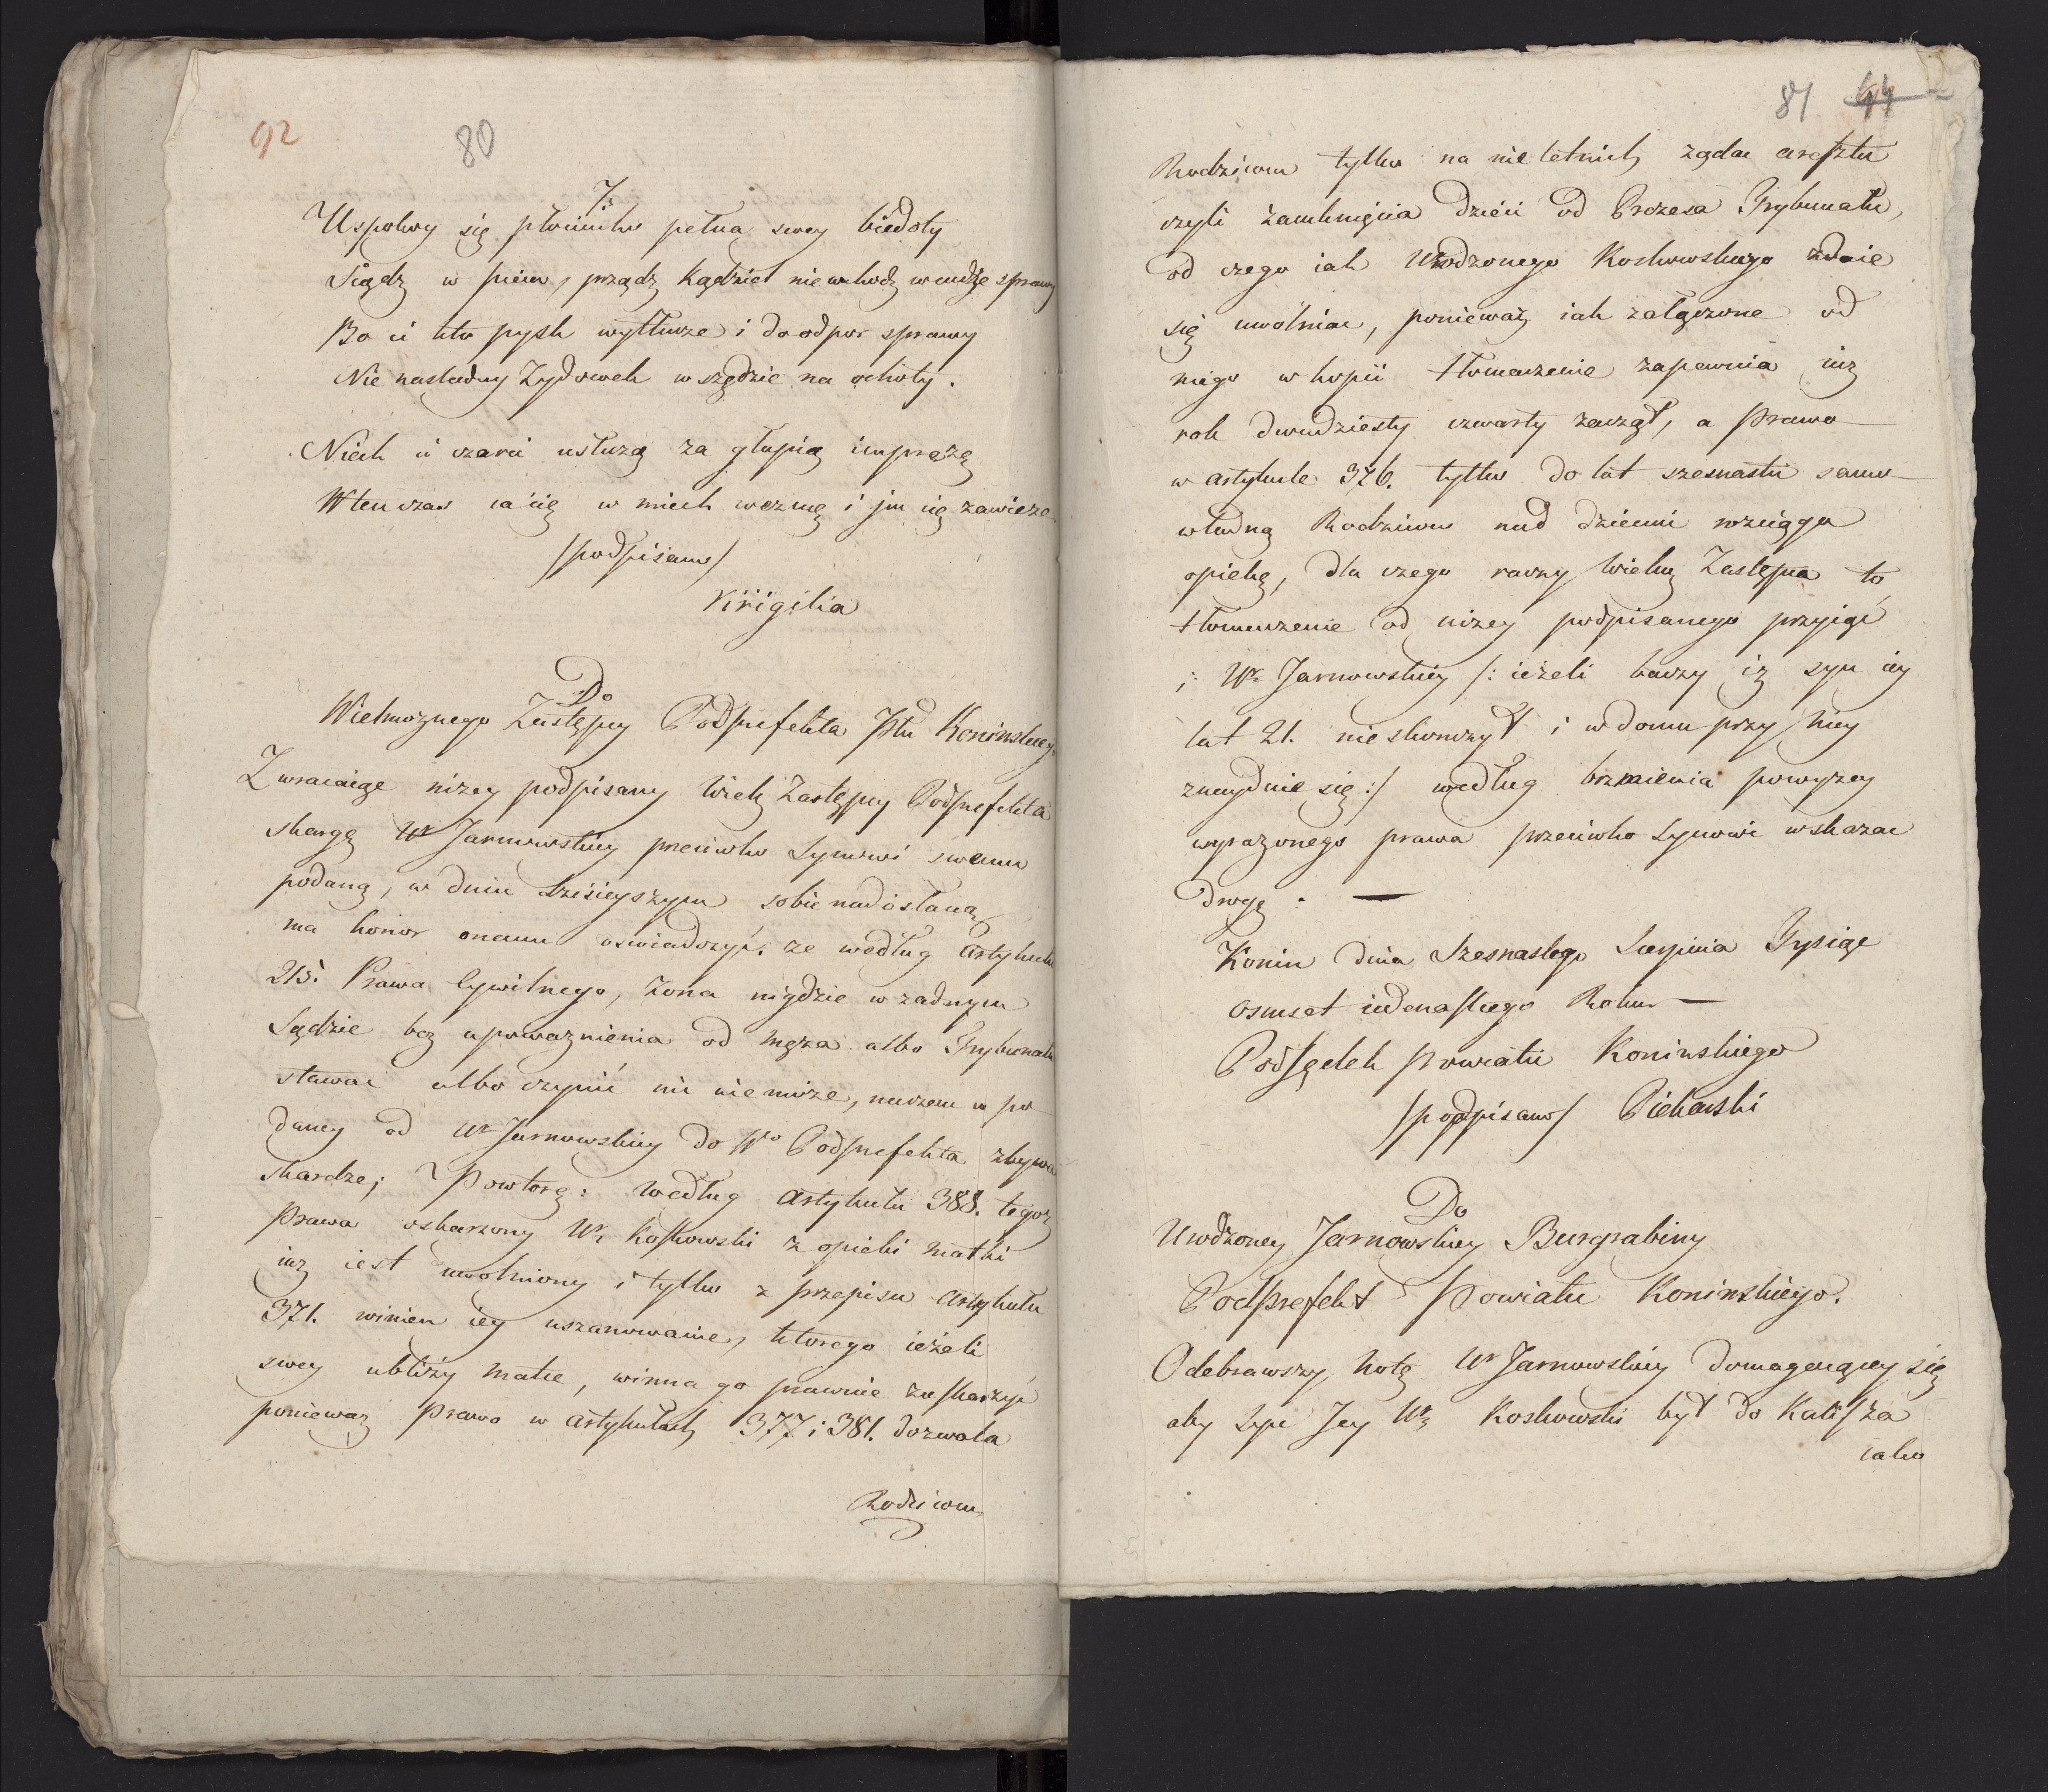 92 80
7.
Uspokuy się płomiko pełna swey biedoty
Siądz w piecu, prządz kądziel nie wchodz w cudze sprawy
Bo ci kto pysk wytłucze i do odpor sprawy
Nie nasladuy Zydowek wszędzie na ochoty.
Niech ci czarci usłuzą za głupią imprezę
Wtenczas ia cię w miech wezmę i im cię zawiezę
/podpisano/
Virigilia
Do
Wielmoznego Zastępcy Podprefekta Pttu Koninskiego
Zwracaiąc nizey podpisany Wielz Zastępcy Podprefekta
skargę Ur Jarnowskiey przeciwko Synowi swemu
podaną, w dniu dzisieyszym sobie nadosłaną
ma honor onemu oswiadczyć: ze według Artykułu
215. Prawa Cywilnego, zona nigdzie w zadnym
Sądzie bez upowaznienia od męza albo Trybunału
stawac albo czynić nic nie może, naczem w po
daney od Ur Jarnowskiey do Wo Podprefekta zbywa
skardze; Powtorę: według Artykułu 388. tegoz
Prawa oskarzony Ur Koskowski z opieki matki
iuz iest uwolniony i tylko z przepisu Artykułu
371. winien iey uszanowanie, ktorego ieżeli
swey ubliży matce, winna go prawnie zaskarzyć
poniewaz Prawo w Artykułach 377 i 381. dozwala
Rodzicom
81 44
Rodzicom tylko na nieletnich ządac aresztu
czyli zamknięcia dzieci od Prezesa Trybunału,
od czego iak Urodzonego Koskowskiego zdaie
się uwolniac, ponieważ iak załączone od
niego w kopii tłomaczenie zapewnia iuz
rok dwudziesty czwarty zaczął, a Prawo
w artykule 376. tylko do lat szesnastu samo
władną Rodzicow nad dziecmi rozciąga
opiekę, dla czego raczy Wielmz Zastępca to
tłomaczenie od nizey podpisanego przyiąć
i Ur Jarnowskiey /: ieżeli baczy iz syn iey
lat 21. nieskonczył i w domu przy Niey
znayduie się :/ według brzmienia powyzey
wyrazonego prawa przeciwko Synowi wskazac
drogę. —
Konin dnia Szesnastego Sierpnia Tysiąc
osmset iedenastego Roku —
Podsędek Powiatu Koninskiego
/podpisano/ Piekarski
Do
Urodzoney Jarnowskiey Burgrabiny
Podprefekt Powiatu Koninskiego.
Odebrawszy Notę Ur Jarnowskiey domagaiącey się
aby Syn Jey Ur Koskowski był do Kalisza
iako